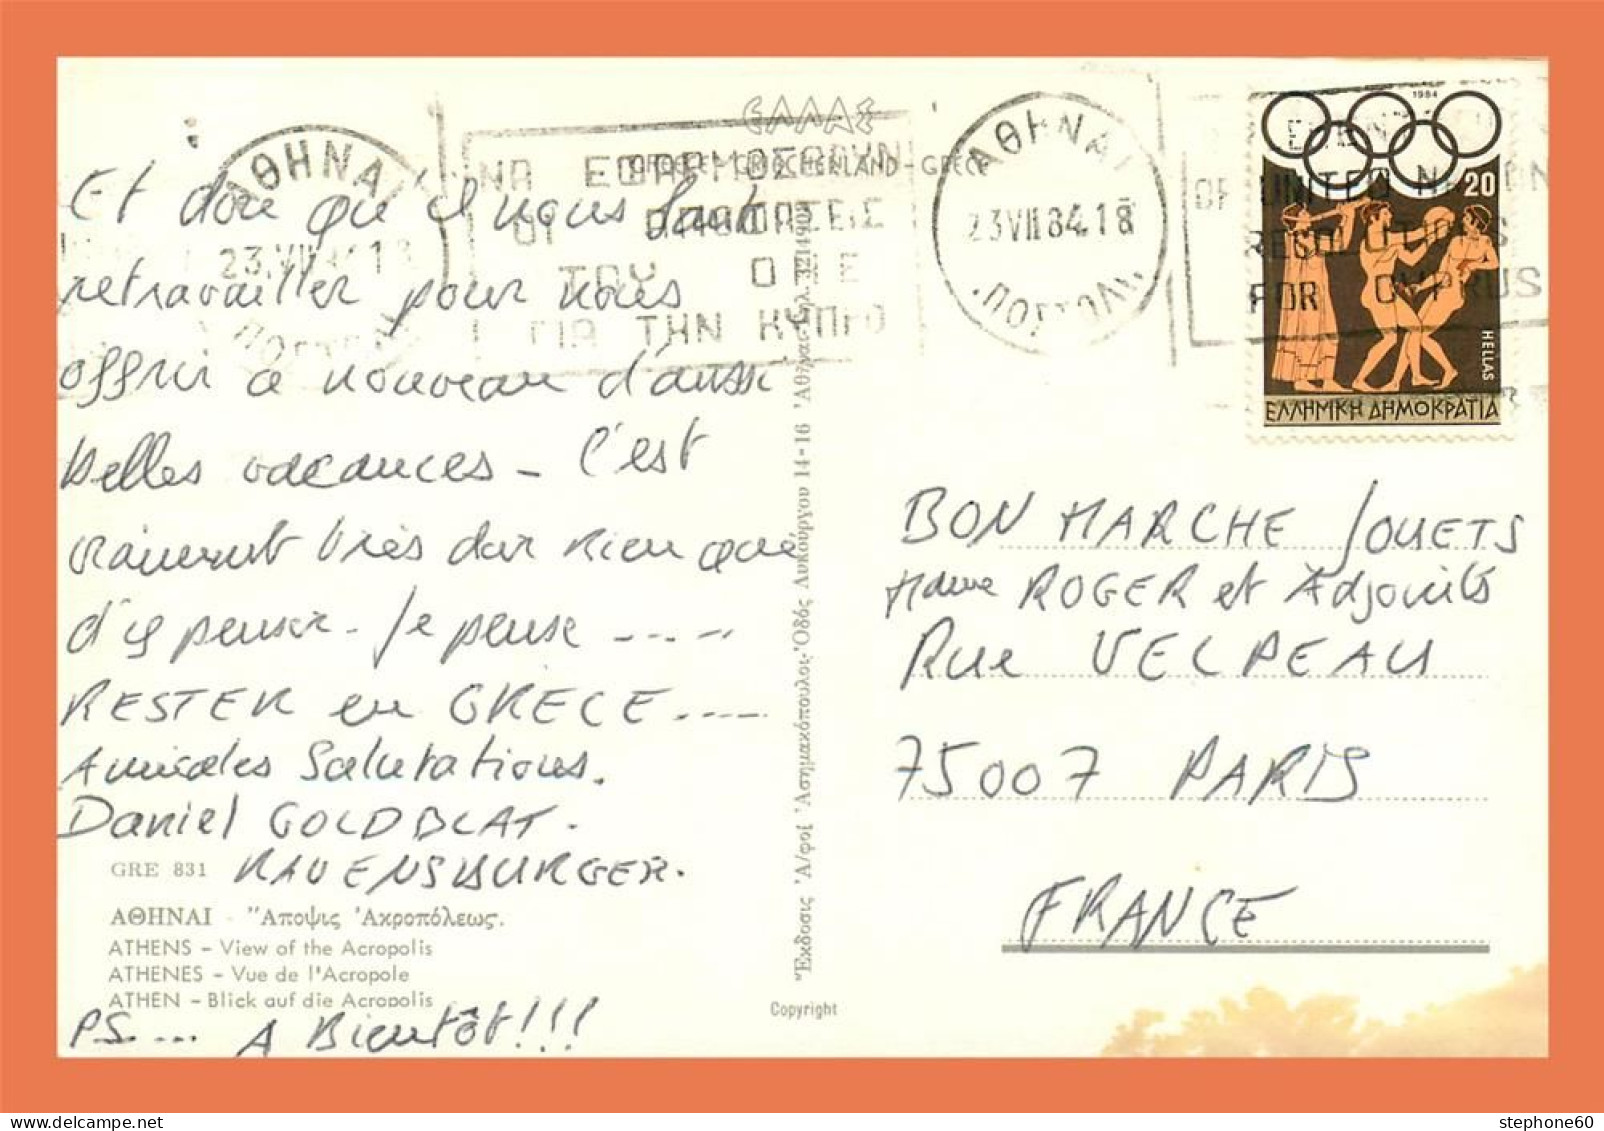 Et dire qu'il nous faut
retravailler pour nous
offrir à nouveau d'aussi
belles vacances - C'est
vraiment très dur rien que
d'y penser - Je pense .....
RESTER en GRECE .....
Amicales Salutations.
Daniel GOLDBLAT.
RAVENSBURGER.
GRE 831
ΑΘΗΝΑΙ - "Αποψις 'Ακροπόλεως.
ATHENS - View of the Acropolis
ATHENES - Vue de l'Acropole
ATHEN - Blick auf die Acropolis
PS.... A Bientôt!!!
'Έκδοσις 'Α/φοί 'Αστημακόπουλοι-'Οδός Λυκούργου 14-16 'Αθῆναι-τηλ. 3214908
Copyright
ΕΛΛΑΣ
GREECE - GRIECHENLAND - GRECE
ΑΘΗΝΑΙ
23.VII 84 18
ΝΑ ΕΦΑΡΜΟΣΘΟΥΝ
ΟΙ ΑΠΟΦΑΣΕΙΣ
ΤΟΥ ΟΗΕ
ΓΙΑ ΤΗΝ ΚΥΠΡΟ
ΑΘΗΝΑΙ
23.VII 84.18
OF UNITED NATION
RESOLUTIONS
FOR CYPRUS
1984
20
HELLAS
ΕΛΛΗΝΙΚΗ ΔΗΜΟΚΡΑΤΙΑ
BON MARCHE JOUETS
Mame ROGER et Adjoints
Rue VELPEAU
75007 PARIS
FRANCE
stephone60